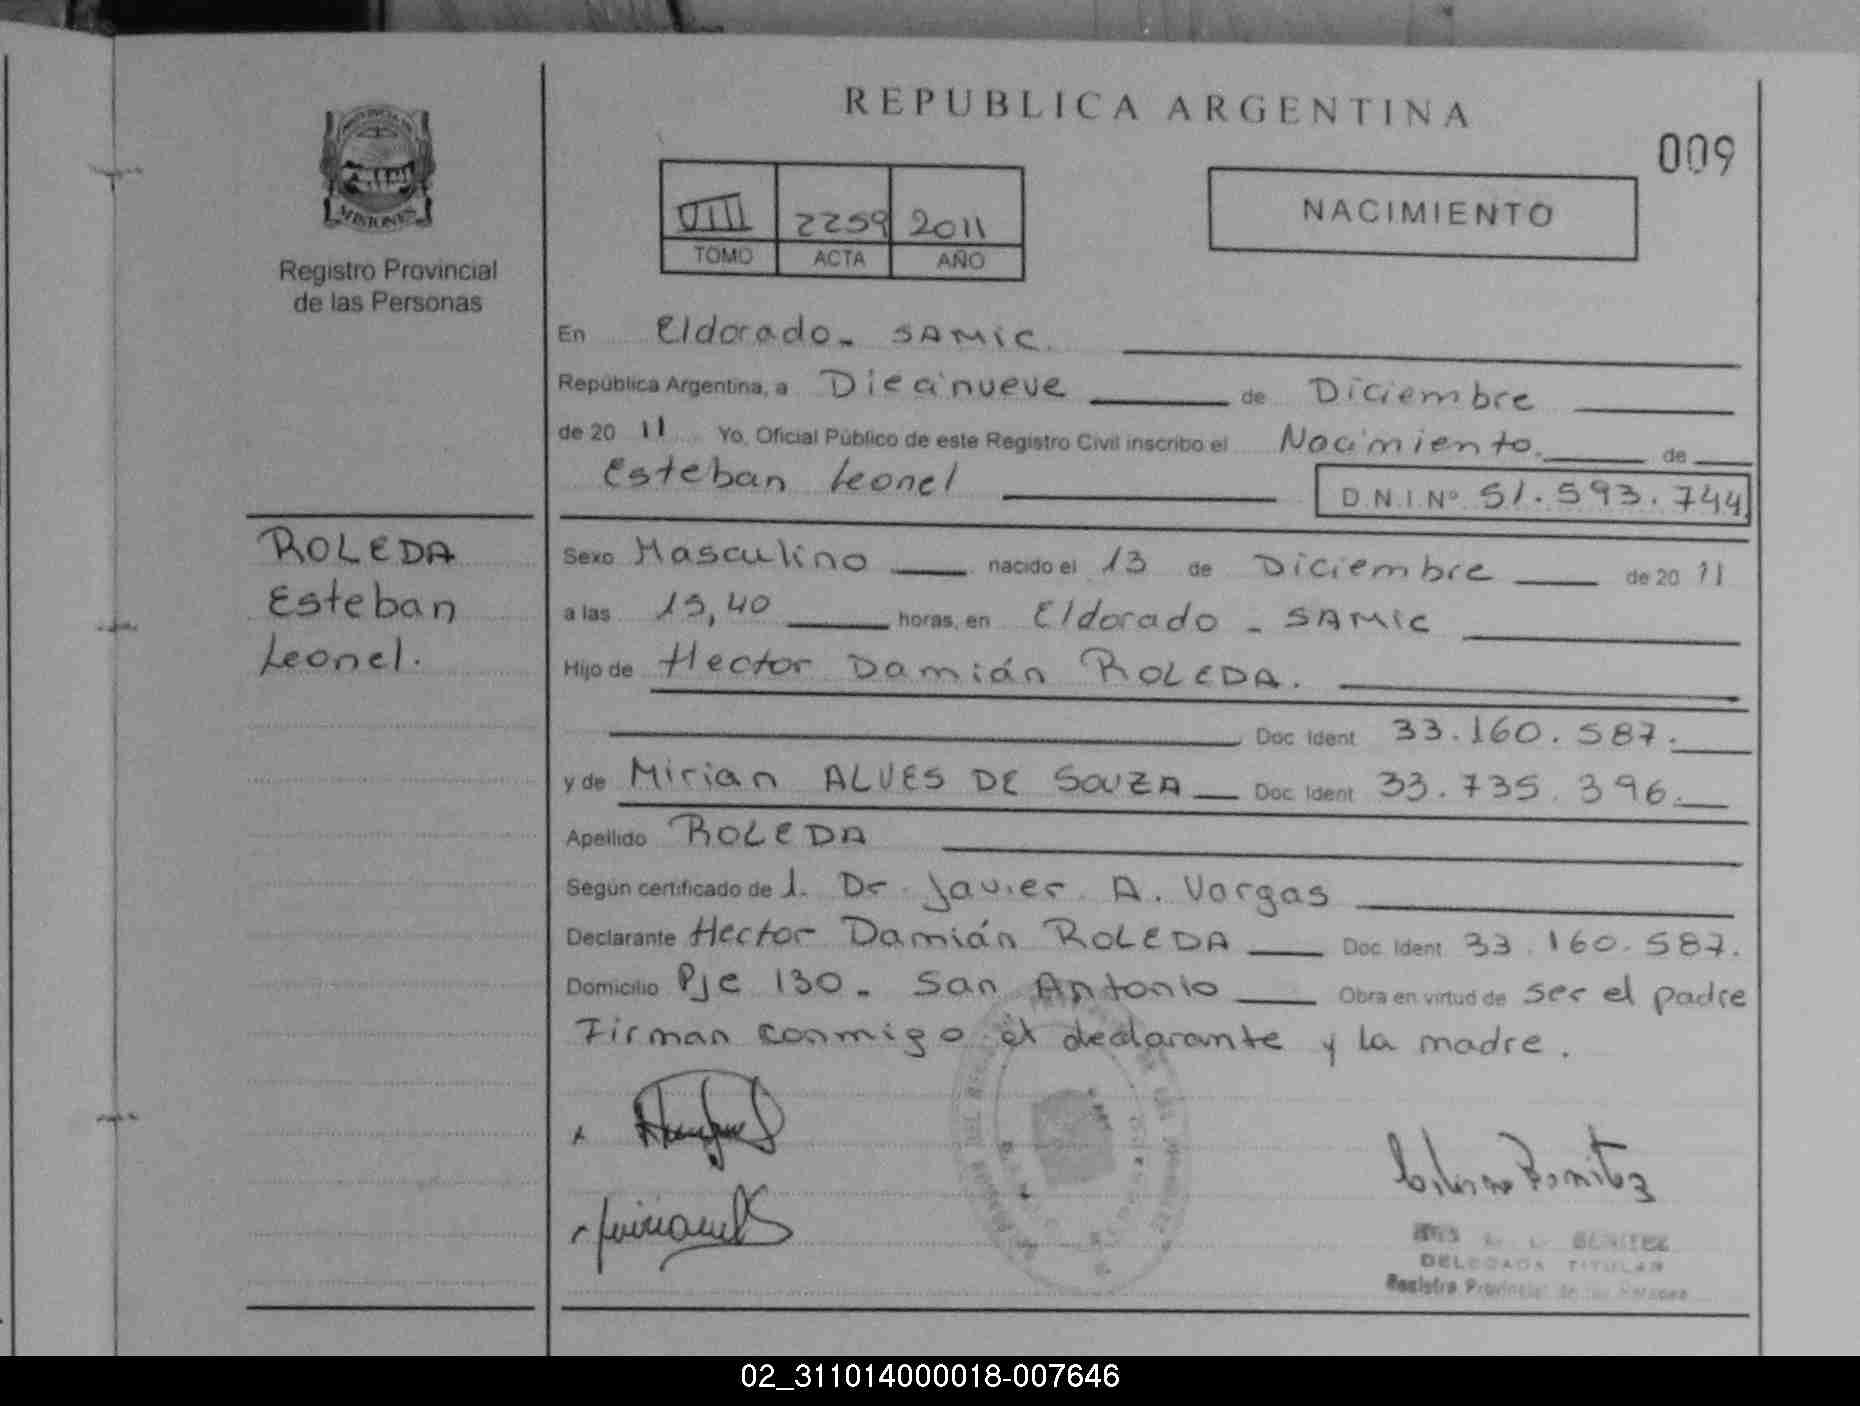 REPUBLICA ARGENTINA
009
NACIMIENTO
VIII 2259 2011
TOMO ACTA AÑO
MISIONES
Registro Provincial
de las Personas
En Eldorado - SAMIC.
República Argentina, a Diecinueve de Diciembre
de 20 11 Yo, Oficial Público de este Registro Civil inscribo el Nacimiento. de
Esteban Leonel D.N.I. Nº 51.593.744
ROLEDA
Esteban
Leonel.
Sexo Masculino nacido el 13 de Diciembre de 20 11
a las 15,40 horas, en Eldorado - SAMIC
Hijo de Hector Damián ROLEDA.
Doc. Ident 33.160.587.
y de Mirian ALVES DE SOUZA Doc. Ident 33.735.396.
Apellido ROLEDA
Según certificado de l. Dr. Javier A. Vargas
Declarante Hector Damián ROLEDA Doc. Ident 33.160.587.
Domicilio Pje 130 - San Antonio Obra en virtud de ser el padre
Firman conmigo el declarante y la madre.
x
Benitez
BENITEZ
DELEGADA TITULAR
Registro Provincial de las Personas
02_311014000018-007646